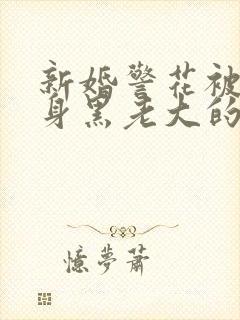 新婚警花被
身黑老大的
憶夢蕭